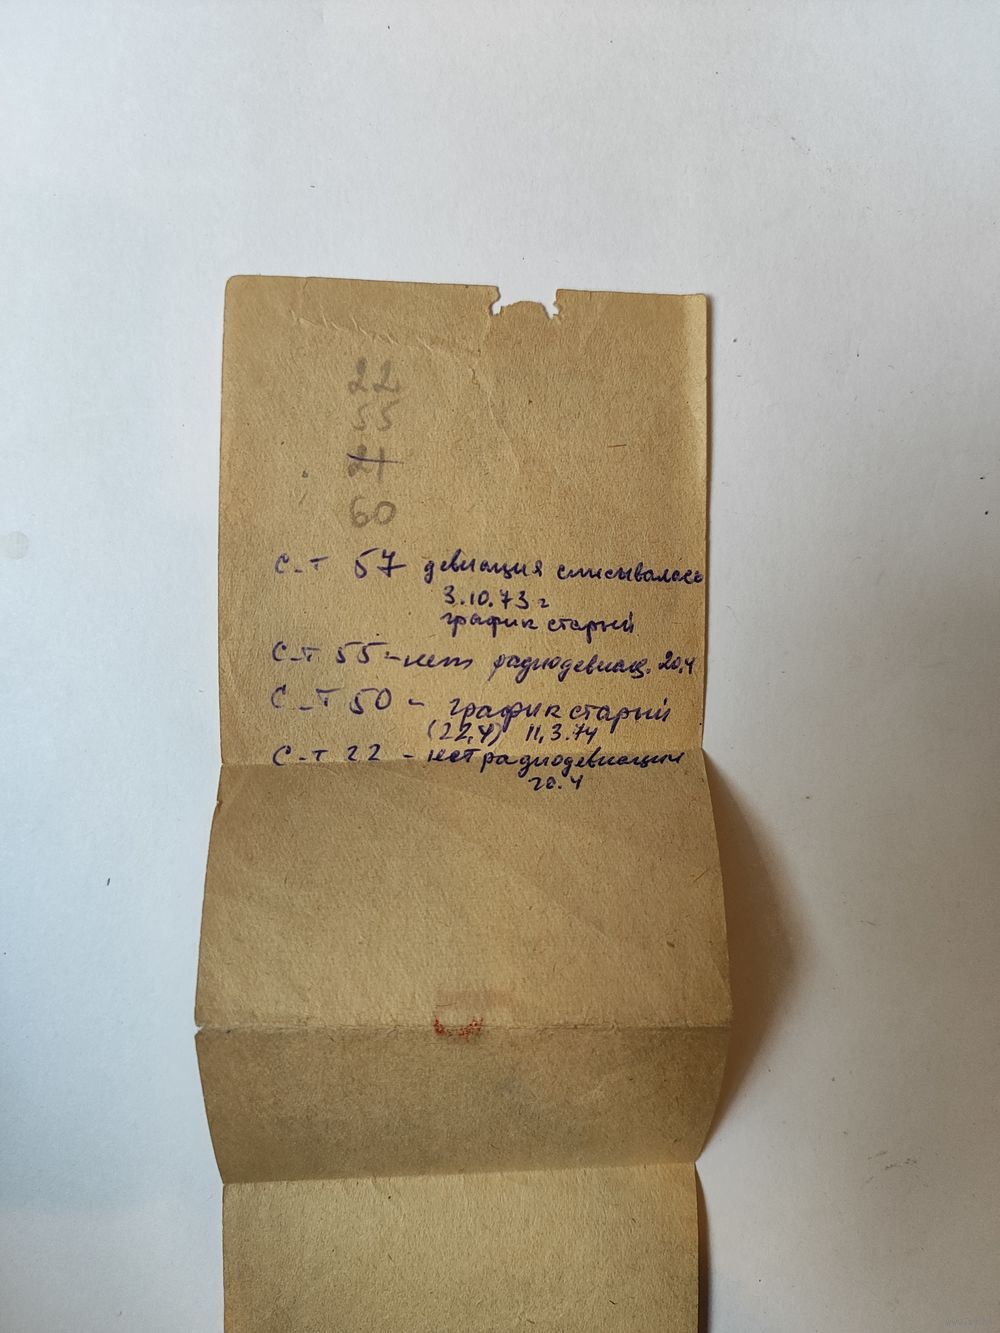 22
55
21
60
С-т 57 девиация списывалась
3.10.73 г
график старый
С-т 55 - нет радиодевиац. 20.4
С-т 50 - график старый
(22,4) 11,3.74
С-т 22 - нет радиодевиации
20.4